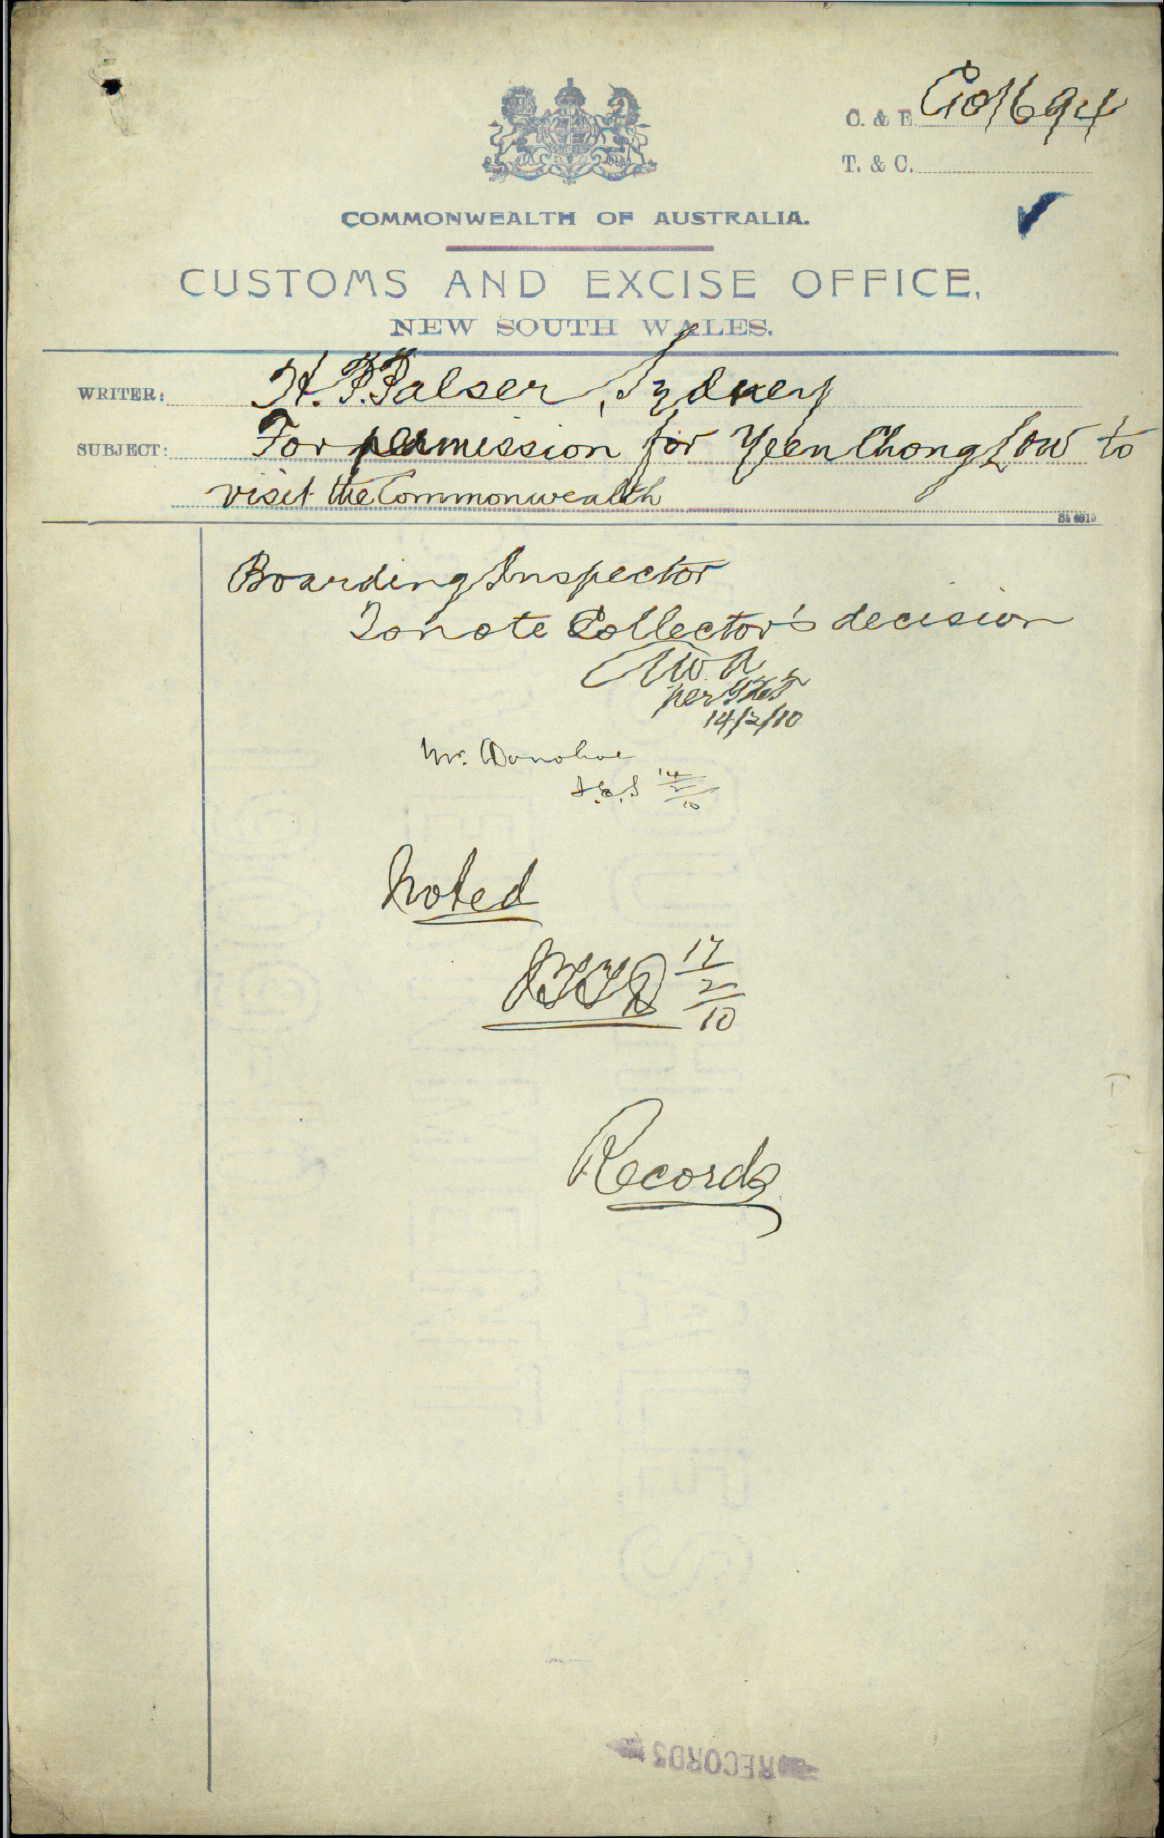 C. & E. C10/1694
T. & C.
COMMONWEALTH OF AUSTRALIA.
CUSTOMS AND EXCISE OFFICE,
NEW SOUTH WALES.
WRITER: H. P. Palser, Sydney
SUBJECT: For permission for Yeen Chong Low to
visit the Commonwealth
St 4919
Boarding Inspector
To note Collector's decision
per
14/2/10
Mr. Donohoe
14/2/10
Noted
17/2/10
Records
RECORDS